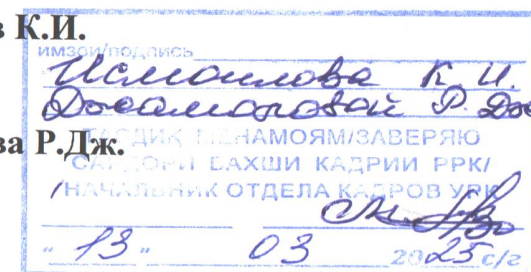 в К.И.
имзои/подпись
Исмоилова К. И.
Джаматовой Р. Дж
ва Р.Дж.
ТАСДИҚ МЕНАМОЯМ/ЗАВЕРЯЮ
САРДОРИ БАХШИ КАДРИИ РРК/
/НАЧАЛЬНИК ОТДЕЛА КАДРОВ УРК
" 13 " 03 2025 с/г